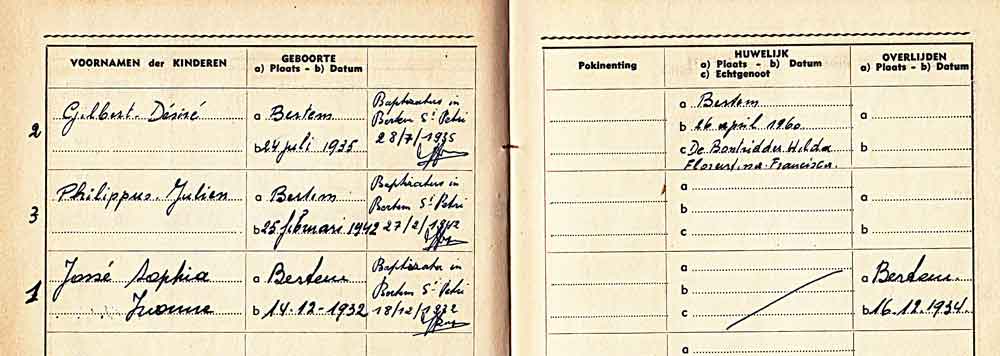 VOORNAMEN der KINDEREN
GEBOORTE
a) Plaats - b) Datum
Pokinenting
HUWELIJK
a) Plaats - b) Datum
c) Echtgenoot
OVERLIJDEN
a) Plaats - b) Datum
2
Gilbert Désiré
a Bertem
b 24 juli 1935
Baptizatus in
Bertem St Petri
28/7/1935
a Bertem
b 26 april 1960
c De Bontridder Hilda
Florentina-Francisca.
a
b
3
Philippus Julien
a Bertem
b 25 februari 1942
Baptizatus in
Bertem St Petri
27/2/1942
a
b
c
a
b
1
Jossé Sophia
Ivonne
a Bertem
b 14-12-1932
Baptizata in
Bertem St Petri
18/12/1932
a
b
c
a Bertem.
b 16.12.1934.
a